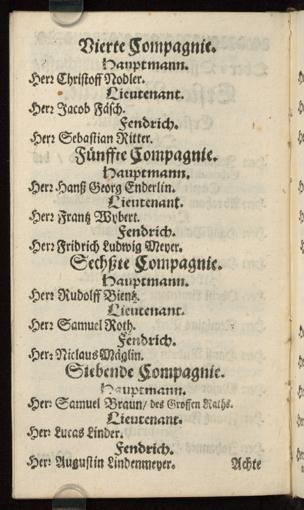 Vierte Compagnie.
Hauptmann.
Herr Christoff Nodler.
Lieutenant.
Herr Jacob Fäsch.
Fendrich.
Herr Sebastian Ritter.
Fünffte Compagnie.
Hauptmann.
Herr Hanß Georg Enderlin.
Lieutenant.
Herr Frantz Wybert.
Fendrich.
Herr Fridrich Ludwig Meyer.
Sechßte Compagnie.
Hauptmann.
Herr Rudolff Bientz.
Lieutenant.
Herr Samuel Roth.
Fendrich.
Herr Niclaus Mäglin.
Siebende Compagnie.
Hauptmann.
Herr Samuel Braun/ des Grossen Raths.
Lieutenant.
Herr Lucas Linder.
Fendrich.
Herr Augustin Lindenmeyer.
Achte